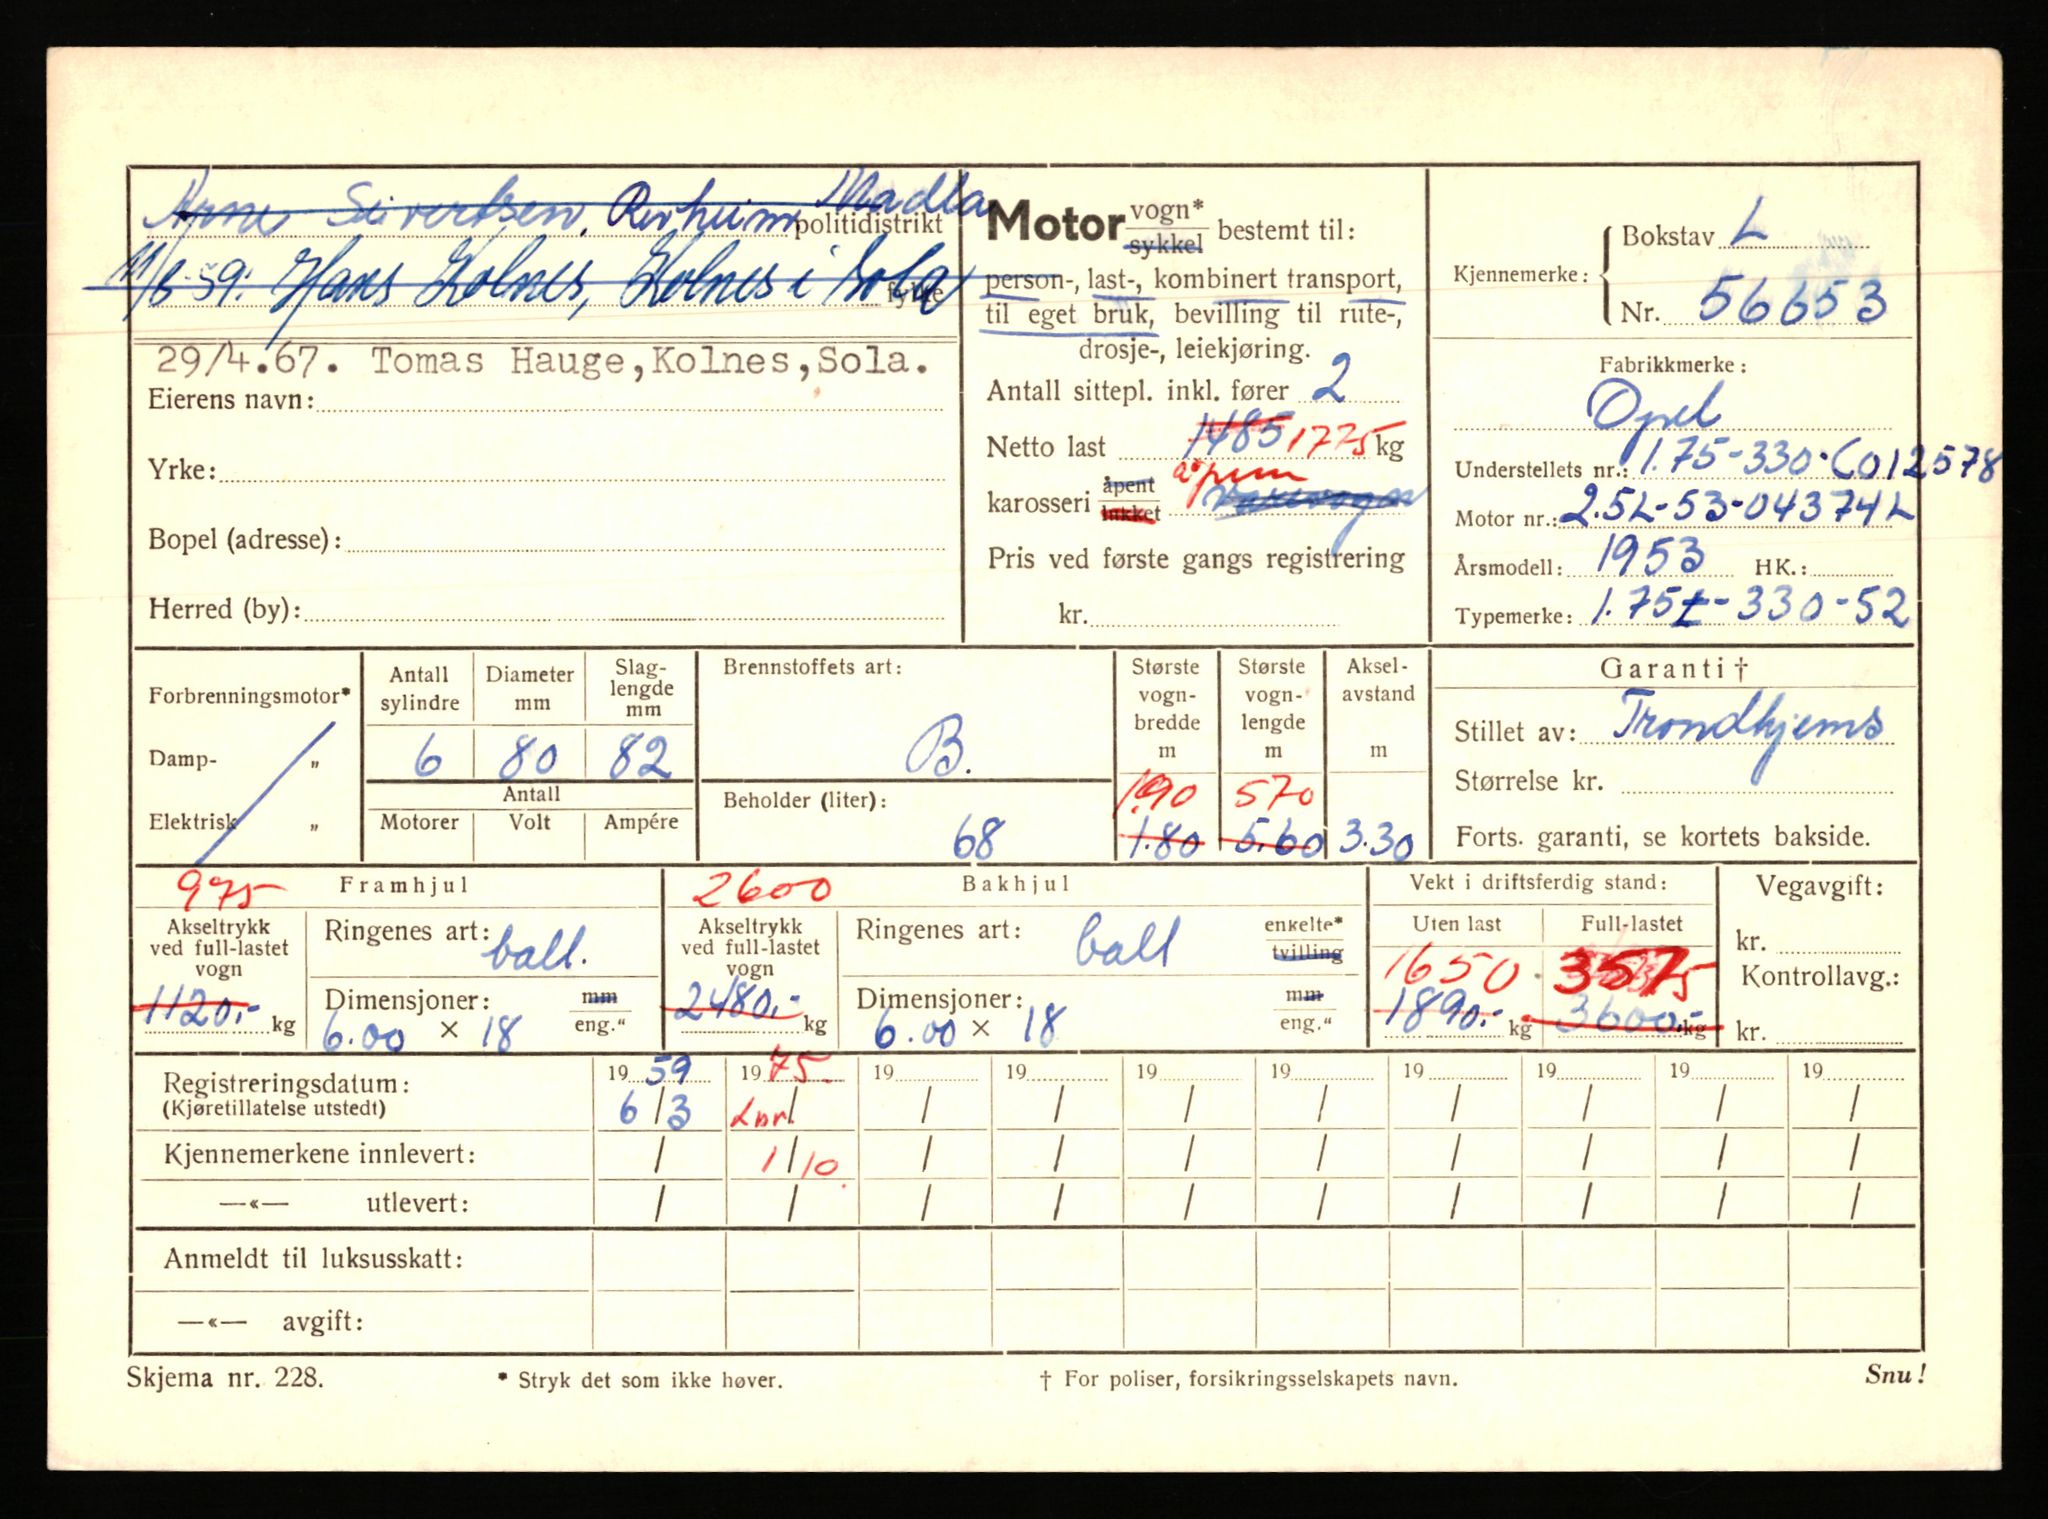 Arne Sivertsen, Revheim Madla
politidistrikt
11/6-59: Hans Kolnes, Kolnes i Sola
fylke
29/4.67. Tomas Hauge,Kolnes,Sola.
Eierens navn:
Yrke:
Bopel (adresse):
Herred (by):
Motor vogn* sykkel bestemt til:
person-, last-, kombinert transport,
til eget bruk, bevilling til rute-,
drosje-, leiekjøring.
Antall sittepl. inkl. fører 2
Netto last 1485 1775 kg
karosseri åpent lukket åpen varevogn
Pris ved første gangs registrering
kr.
Kjennemerke: Bokstav L
Nr. 56653
Fabrikkmerke:
Opel
Understellets nr.: 1.75-330-C012578
Motor nr.: 2.5L-53-04374L
Årsmodell: 1953 HK.:
Typemerke: 1.75t-330-52
Forbrenningsmotor*
Damp- „
Elektrisk „
Antall sylindre Diameter mm Slag-lengde mm
6 80 82
Antall
Motorer Volt Ampére
Brennstoffets art:
B.
Beholder (liter):
68
Største vogn-bredde m Største vogn-lengde m Aksel-avstand m
1.90 570
1.80 5.60 3.30
Garanti †
Stillet av: Trondhjems
Størrelse kr.
Forts. garanti, se kortets bakside.
975 Framhjul
Akseltrykk ved full-lastet vogn
1120.- kg
Ringenes art: ball.
Dimensjoner: mm eng."
6.00 × 18
2600 Bakhjul
Akseltrykk ved full-lastet vogn
2480.- kg
Ringenes art: ball enkelte* tvilling
Dimensjoner: mm eng."
6.00 × 18
Vekt i driftsferdig stand:
Uten last Full-lastet
1650 3575
1890.- kg 3600.- kg
Vegavgift:
kr.
Kontrollavg.:
kr.
Registreringsdatum: 19 59 19 75. 19 19 19 19 19 19 19 19
(Kjøretillatelse utstedt) 6/3 / / / / / / / / /
Kjennemerkene innlevert: / 1/10. / / / / / / / /
—«— utlevert: / / / / / / / / / /
Anmeldt til luksusskatt:
—«— avgift:
Skjema nr. 228. * Stryk det som ikke høver. † For poliser, forsikringsselskapets navn. Snu!